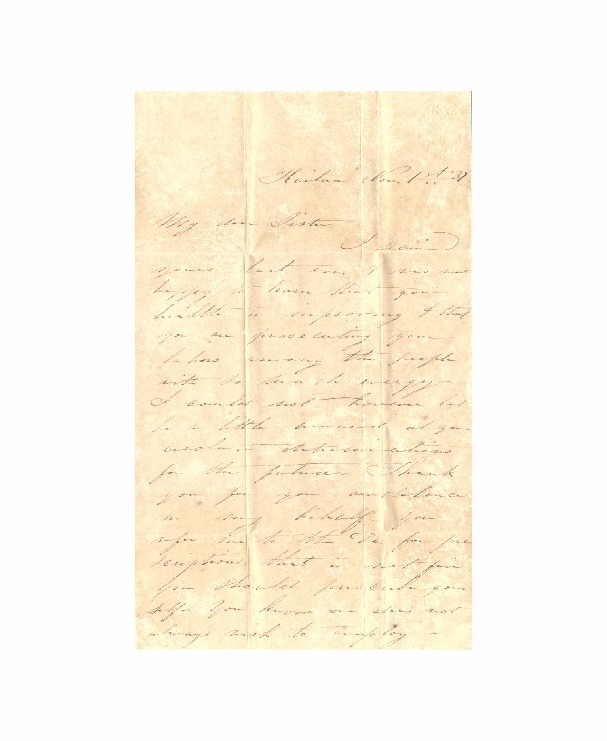 Kailua Nov. 1st 37
My dear Sister
I received
yours last eve, I was
happy to learn that your
health is improving & that
you are prosecuting your
labors among the people
with so much energy
I could not however but
be a little amused at your
resolute determinations
for the future. Thank
you for your
in my behalf. you
refer me to the Dr for pre
scriptions that is not fair
You should prescribe your
self. You know we does not
always wish to employ a